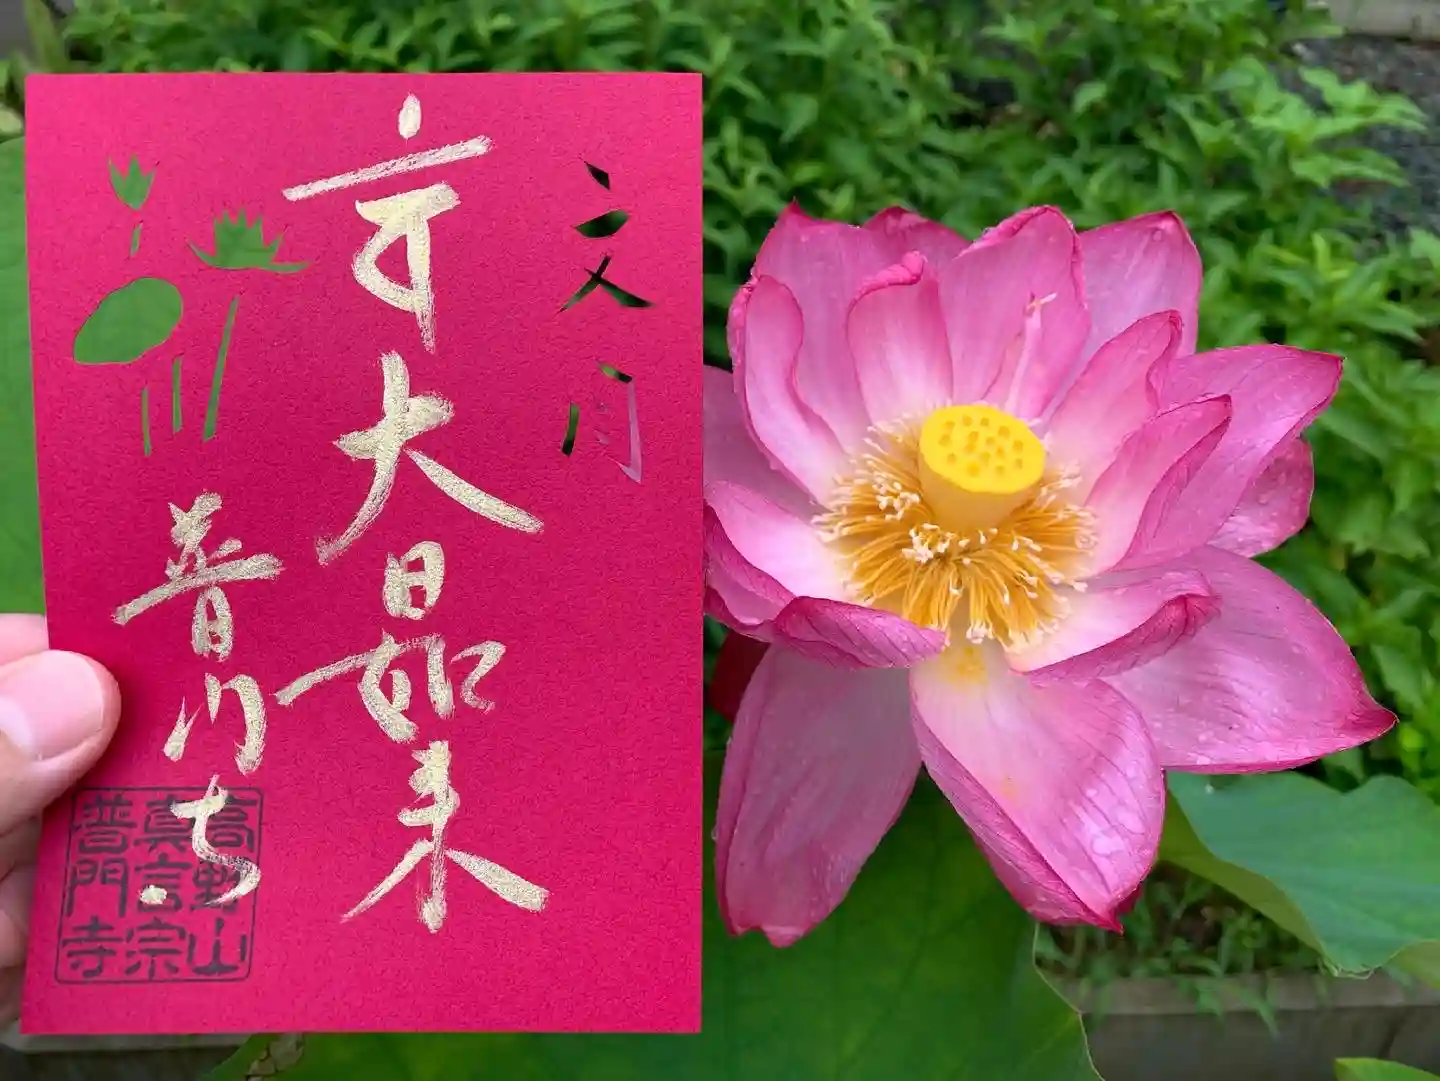 文月
大日如来
普門寺
高野山
真言宗
普門寺